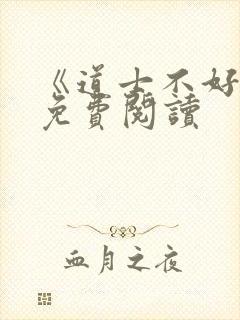 《道士不好
免費閱讀
血月之夜